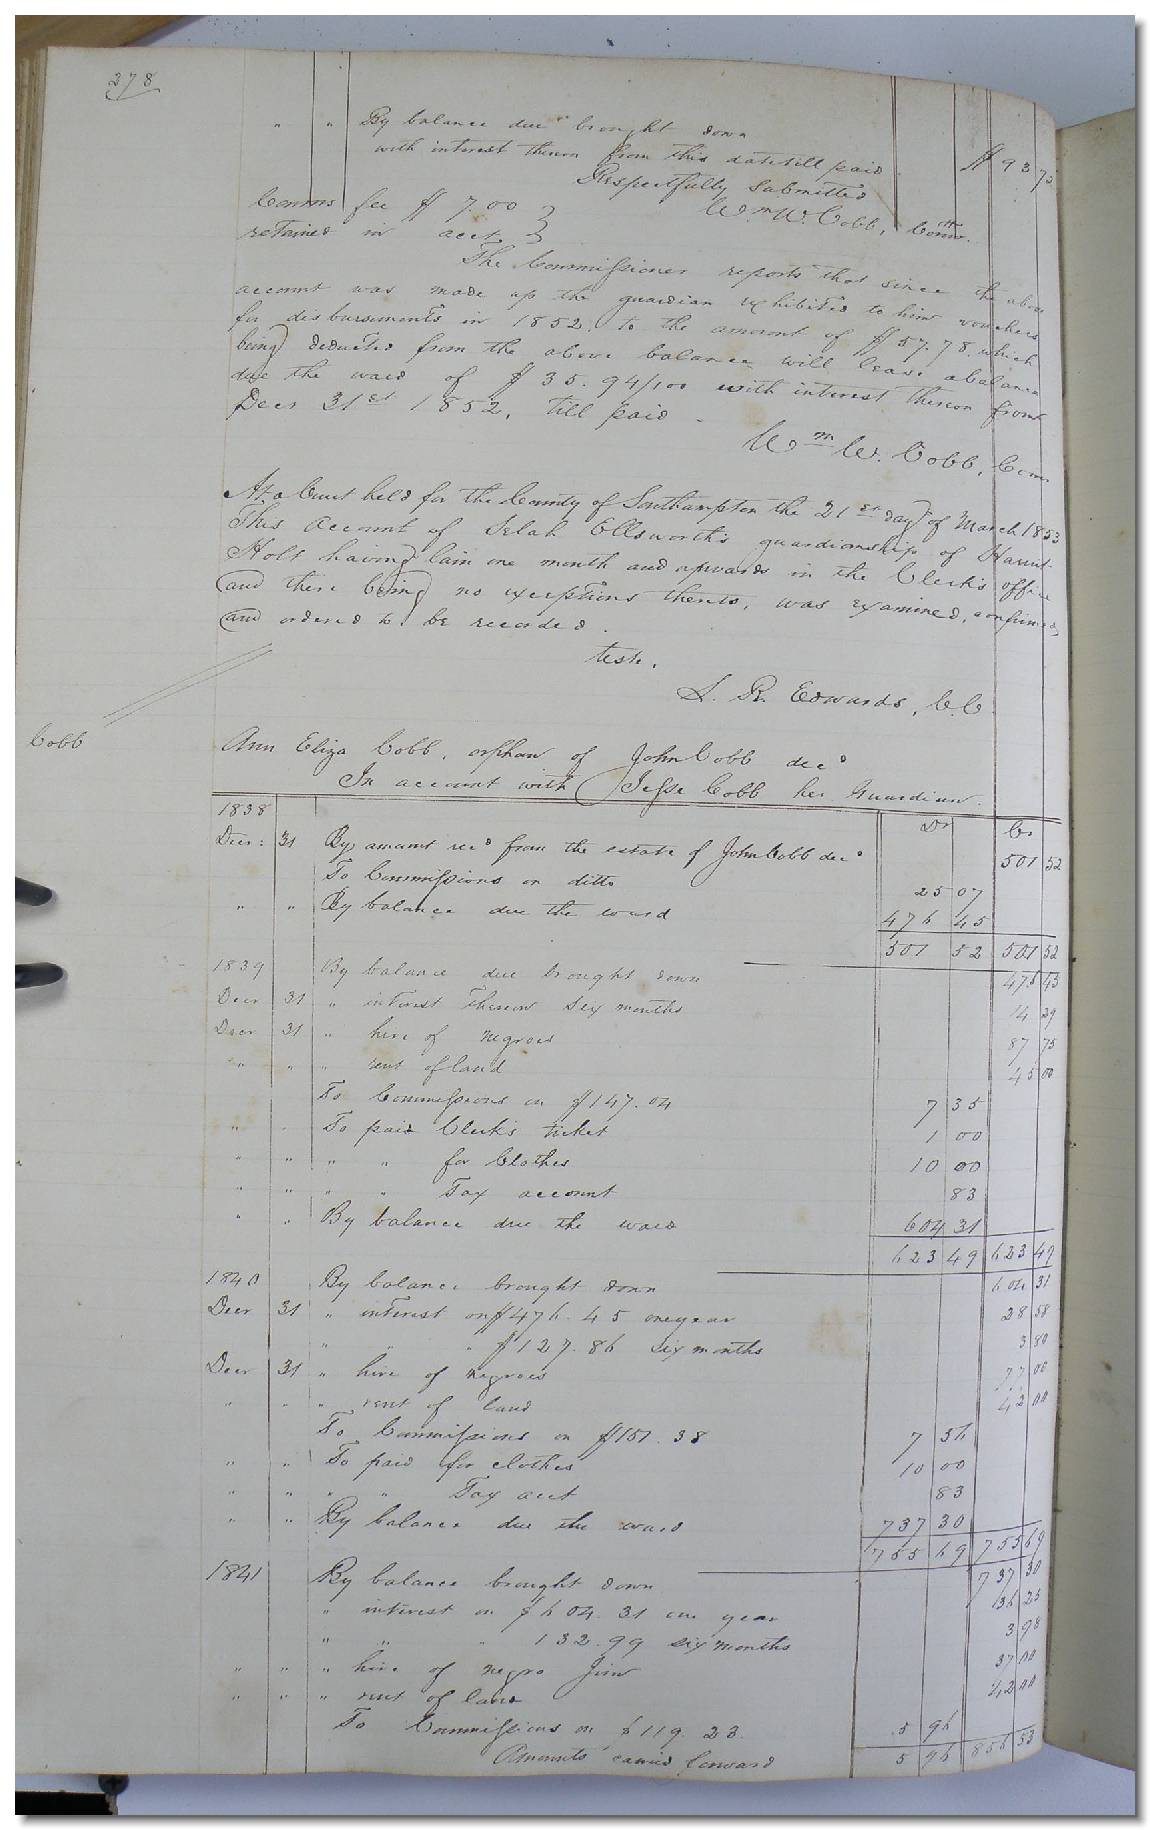 278
" " By balance due brought down
with interest thereon from this date till paid $ 93 72
Respectfully Submitted
Comms fee $ 7.00 } Wm W. Cobb, Comr.
retained in acct }
The Commissioner reports that since the above
account was made up the guardian exhibited to him vouchers
for disbursements in 1852, to the amount of $ 57.78, which
being deducted from the above balance will leave a balance
due the ward of $ 35.94/100 with interest thereon from
Decr 31st 1852, till paid.
Wm W. Cobb, Com
At a Court held for the County of Southampton the 21st day of March 1853
This account of Selah Ellsworth's guardianship of Harriet
Holt having lain one month and upwards in the Clerk's office
and there being no exceptions thereto, was examined, confirmed,
and ordered to be recorded.
Teste,
L. R. Edwards, C.C.
Cobb
Ann Eliza Cobb, orphan of John Cobb decd
In account with Jesse Cobb her Guardian.
1838 Dr Cr
Decr: 31 By amount recd from the estate of John Cobb decd 501 52
To Commissions on ditto 25 07
" " By balance due the ward 476 45
501 52 501 52
1839 By balance due brought down 476 45
Decr 31 " interest thereon six months 14 29
Decr 31 " hire of negroes 87 75
" " " rent of land 45 00
To Commissions on $147.04 7 35
" " To paid Clerk's ticket 1 00
" " " " for Clothes 10 00
" " " " Tax account 83
" " By balance due the ward 604 31
623 49 623 49
1840 By balance brought down 604 31
Decr 31 " interest on $476.45 one year 28 58
" " " $127.86 six months 3 80
Decr 31 " hire of negroes 77 00
" " " rent of land 42 00
To Commissions on $151.38 7 56
" " To paid for clothes 10 00
" " " " Tax acct 83
" " By balance due the ward 737 30
755 69 755 69
1841 By balance brought down 737 30
" interest on $604.31 one year 36 25
" " " 132.99 six months 3 98
" " " hire of negro Jim 37 00
" " " rent of land 42 00
To Commissions on $119.23 5 96
Amounts carried forward 5 96 856 53